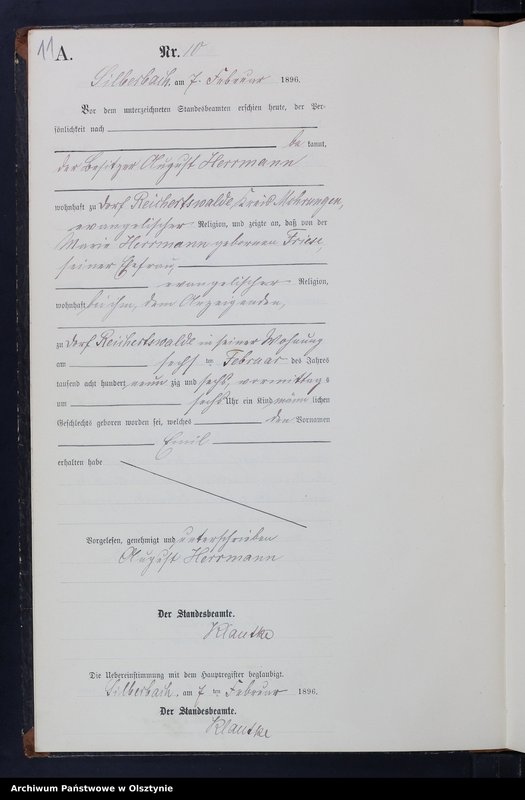 11
A.
Nr. 10
Silberbach, am 7. Februar 1896.
Vor dem unterzeichneten Standesbeamten erschien heute, der Per-
sönlichkeit nach
be kannt,
der Besitzer August Herrmann
wohnhaft zu Dorf Reichertswalde, Kreis Mohrungen,
evangelischer Religion, und zeigte an, daß von der
Marie Herrmann geborenen Friese,
seiner Ehefrau,
evangelischer Religion,
wohnhaft bei ihm, dem Anzeigenden,
zu Dorf Reichertswalde in seiner Wohnung
am sechs ten Februar des Jahres
tausend acht hundert neun zig und sechs, vormittags
um sechs Uhr ein Kind männ lichen
Geschlechts geboren worden sei, welches den Vornamen
Emil
erhalten habe
Vorgelesen, genehmigt und unterschrieben
August Herrmann
Der Standesbeamte.
Klautke
Die Uebereinstimmung mit dem Hauptregister beglaubigt.
Silberbach, am 7 ten Februar 1896.
Der Standesbeamte.
Klautke
Archiwum Państwowe w Olsztynie